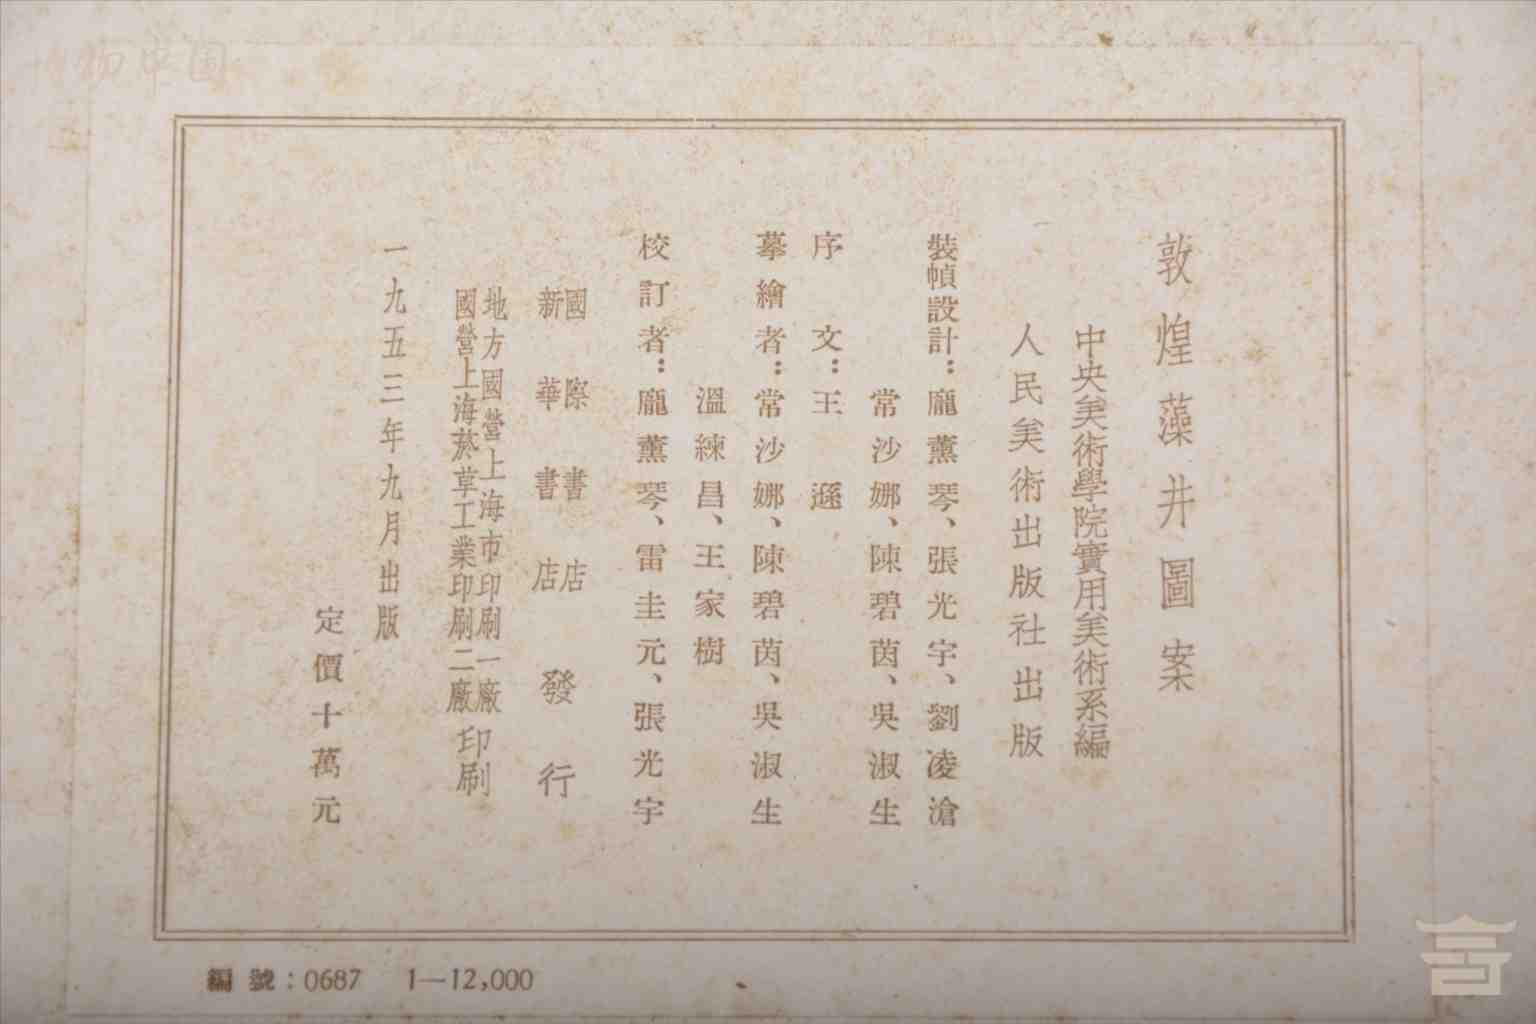 敦煌藻井圖案
中央美術學院實用美術系編
人民美術出版社出版
裝幀設計：龐薰琴、張光宇、劉凌滄
常沙娜、陳碧茵、吳淑生
序文：王遜
摹繪者：常沙娜、陳碧茵、吳淑生
溫練昌、王家樹
校訂者：龐薰琴、雷圭元、張光宇
國際書店
新華書店
發行
地方國營上海市印刷一廠
國營上海菸草工業印刷二廠
印刷
一九五三年九月出版
定價十萬元
編號：0687 1—12,000
物中国